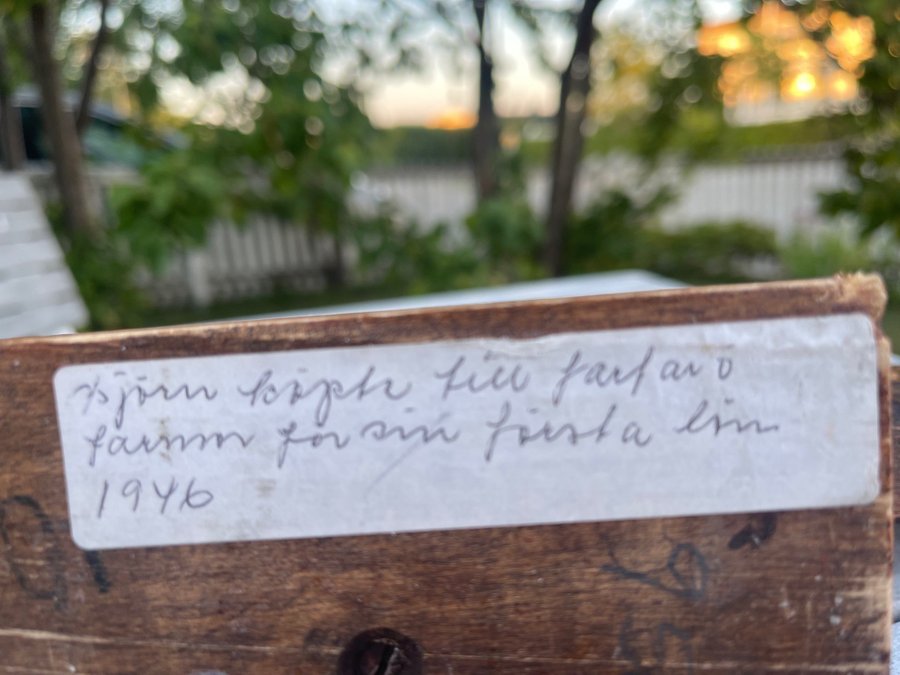 Björn köpte till farfar o
farmor för sin första lön
1946